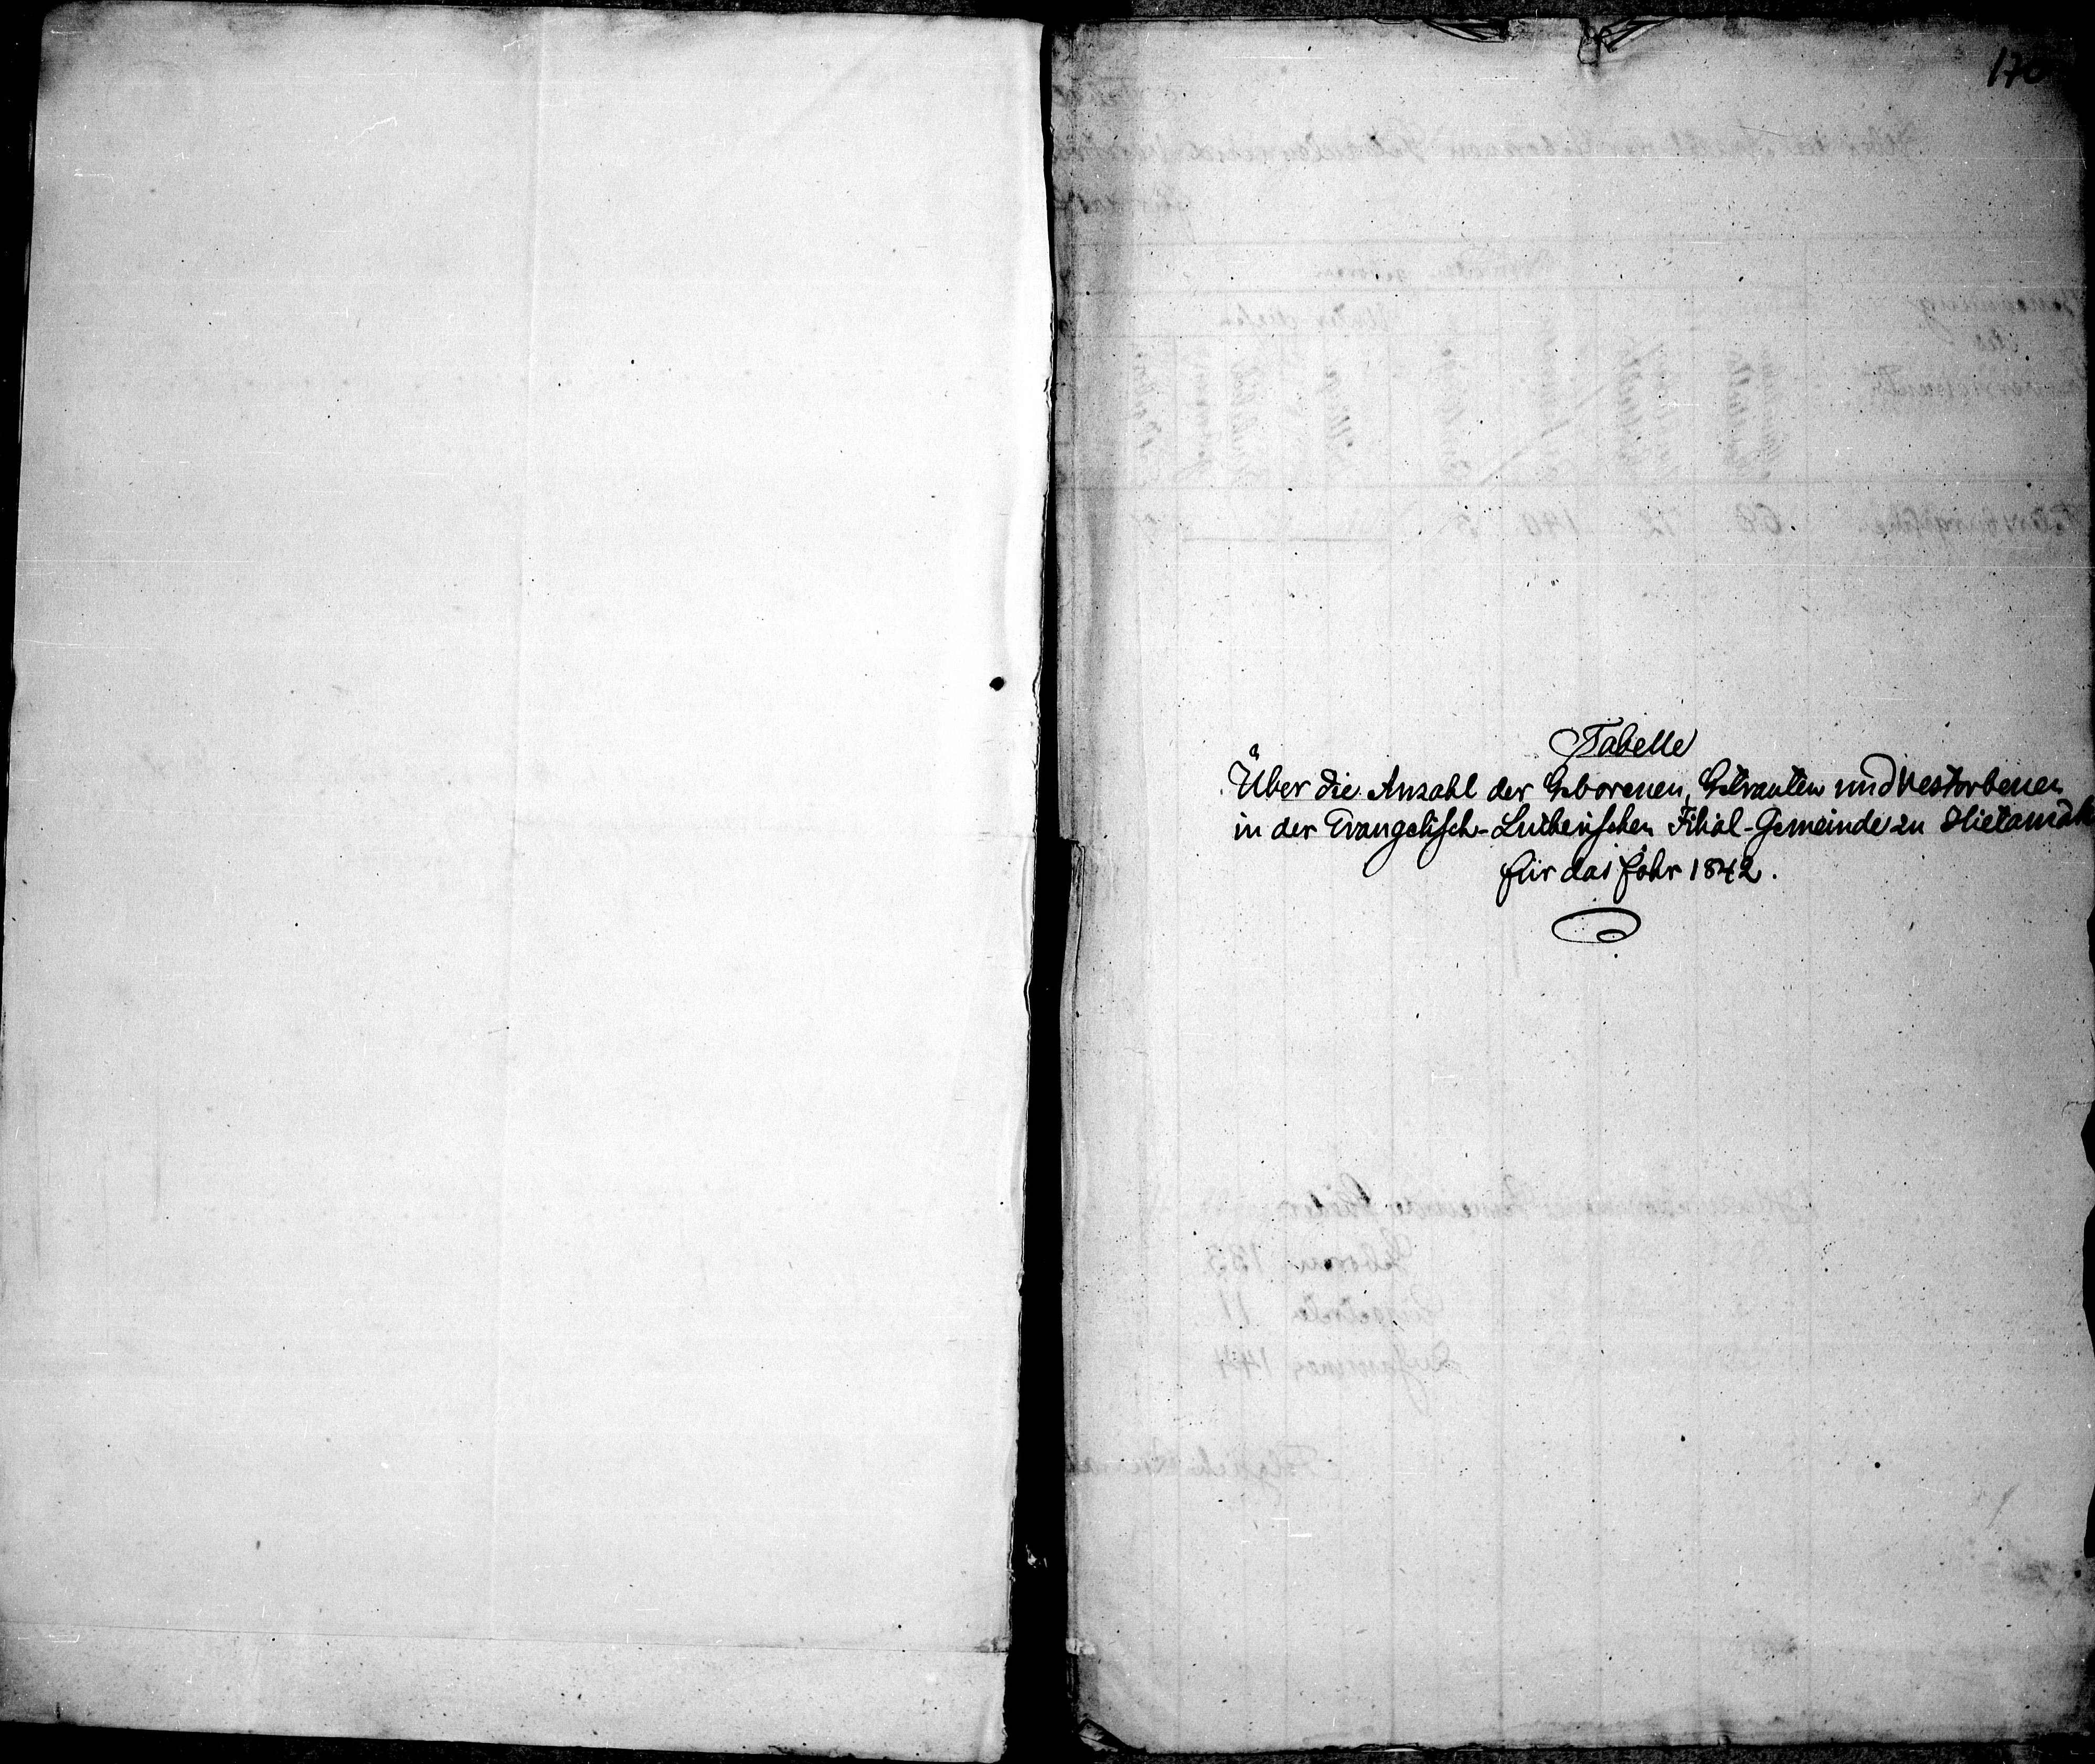 170
Tabelle
Über die Anzahl der Geborenen, Getrauten und Vestorbenen
in der Evangelisch-Lutherischen Filial-Gemeinde zu Hietamäk
für das Jahr 1842.